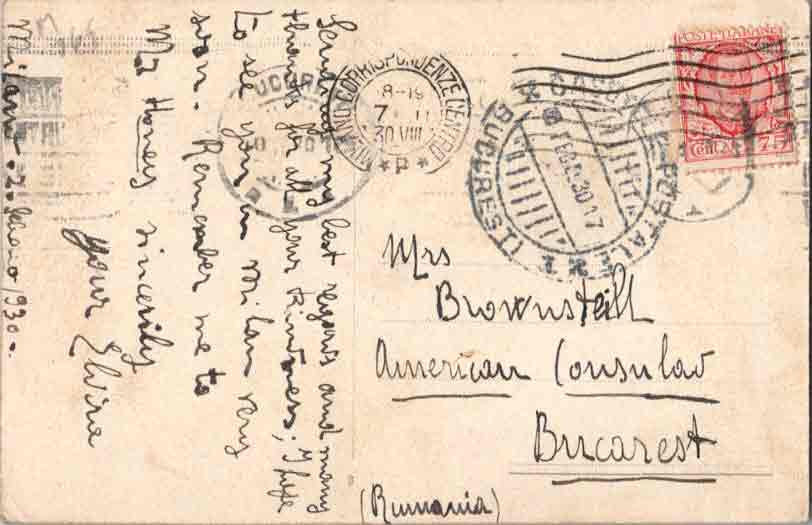 Send you my best regards and many
thanks for all your Kindness; I hope
to see you in milan very
soon. Remember me to
Mr Honey sincerily
your Elvira
Milano - 1930 -
Mrs
Brownsteill
American Consulav
Bucarest
(Rumania)
POSTE ITALIANE
CENT. 75
MILANO CORRISPONDENZE CENTRO
8-19
7 II
30 VIII
* P *
POSTALE
BUCURESTI
FEB. 30 17